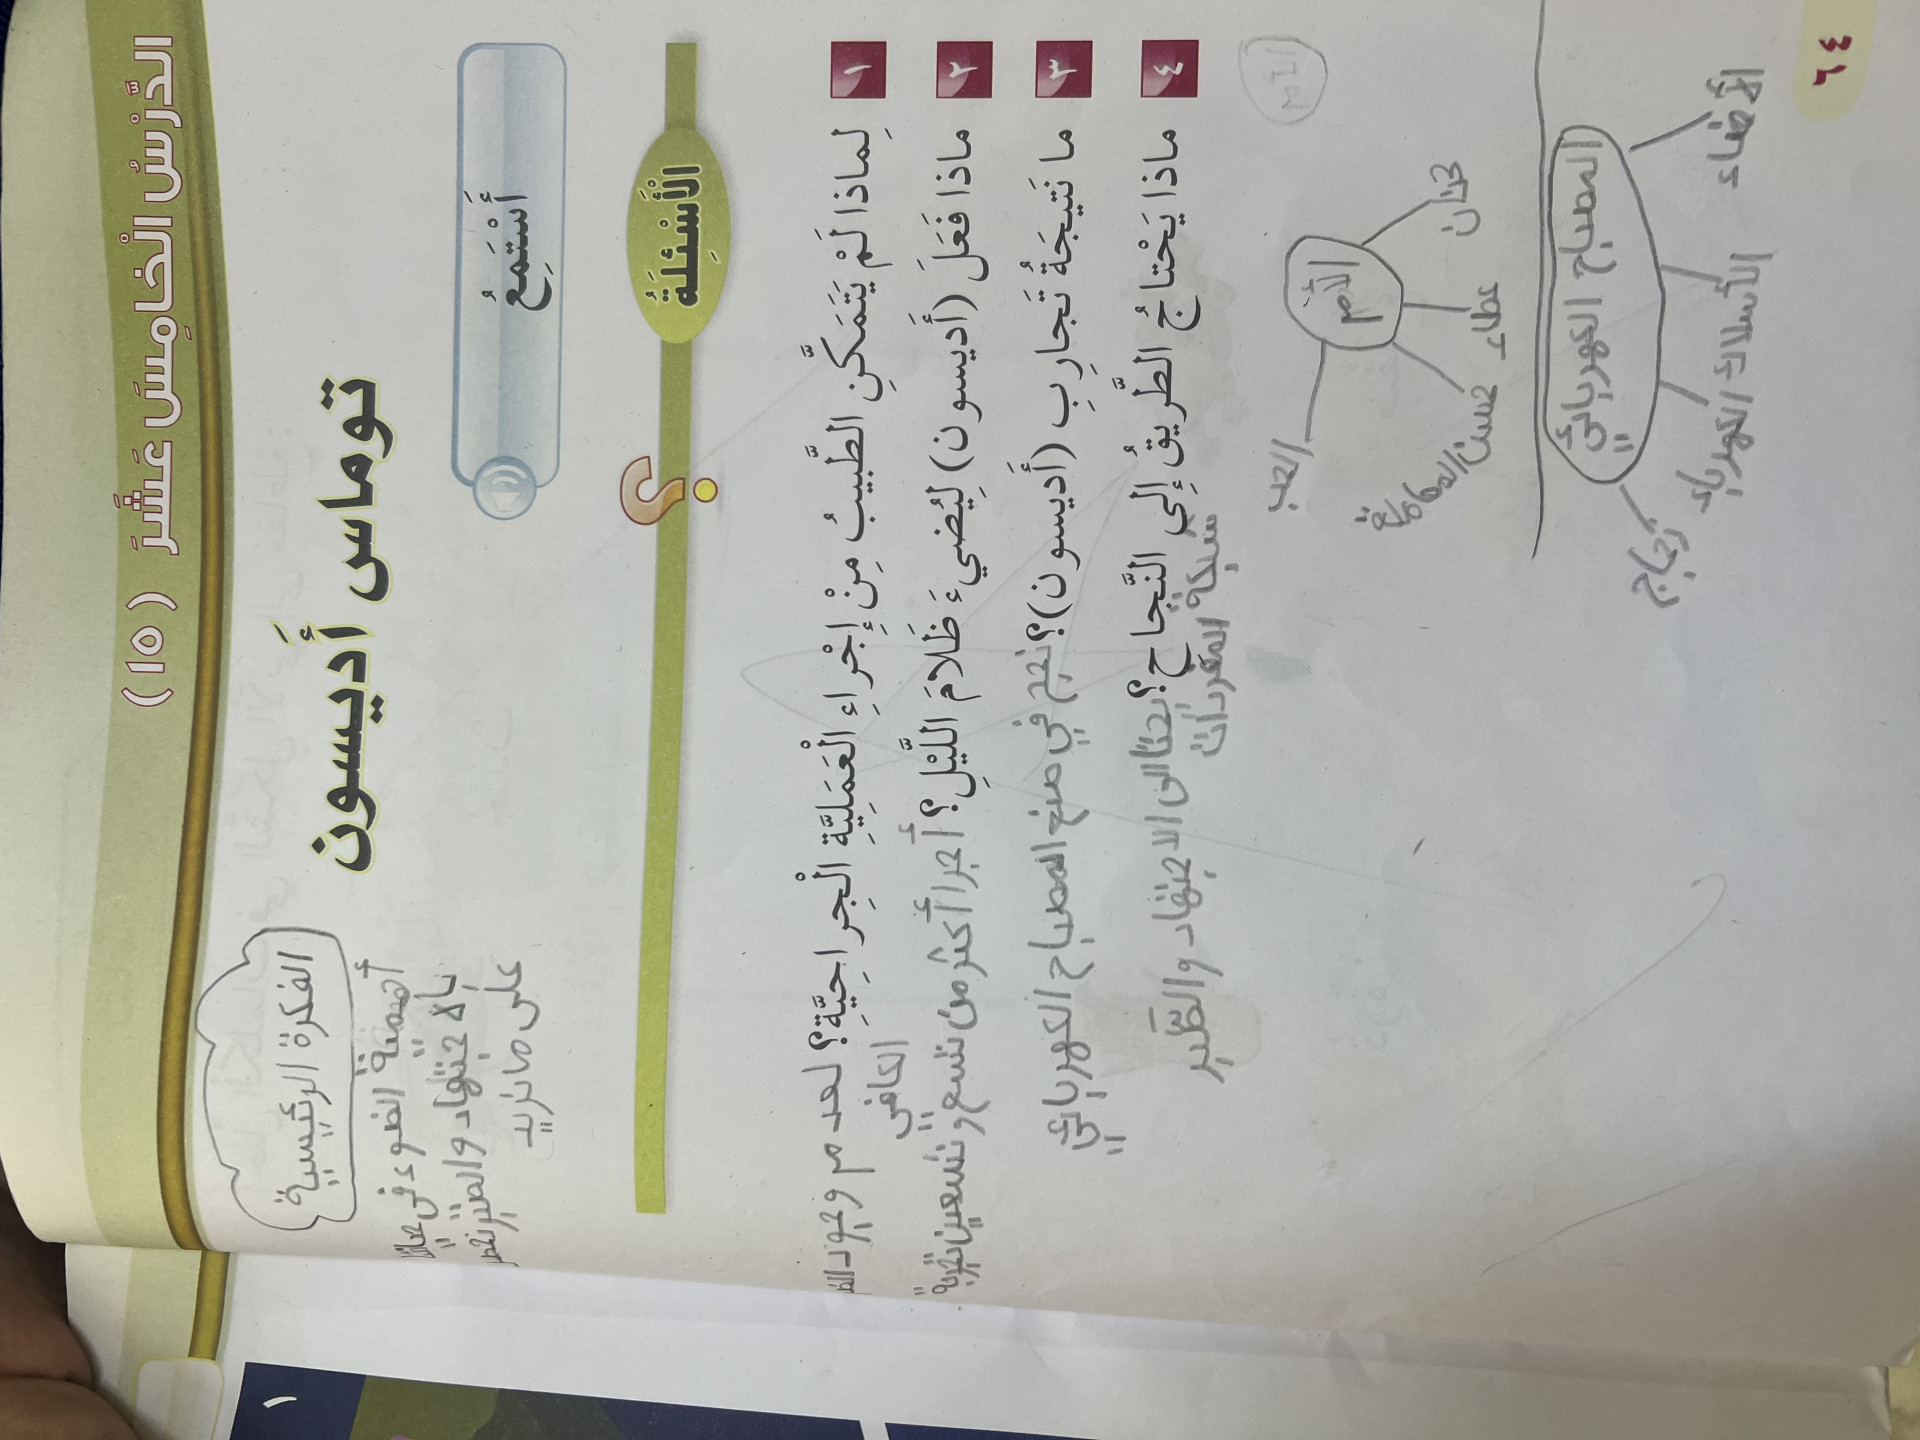 الدَّرْسُ الْخامِسَ عَشَرَ (١٥)
توماس أَديسون
الفكرة الرئيسية
أهمية الضوء في
بالاجتهاد والصبر
على ما نريد
أَسْتَمِعُ
الْأَسْئِلَةُ
١ لِماذا لَمْ يَتَمَكَّنِ الطَّبيبُ مِنْ إِجْراءِ الْعَمَلِيَّةِ الْجِراحِيَّةِ؟ لعدم وجود
الكافي
٢ ماذا فَعَلَ (أَديسون) لِيُضيءَ ظَلامَ اللَّيْلِ؟ أجرا أكثر من تسع وتسعين تجربة
٣ ما نَتيجَةُ تَجارِبِ (أَديسون)؟ نجح في صنع المصباح الكهربائي
٤ ماذا يَحْتاجُ الطَّريقُ إِلى النَّجاحِ؟ الى الاجتهاد والصبر
شبكة المفردات
الأم
الأم
حنان
عطاء
حسن المعاملة
الحب
المصباح الكهربائي
الأضاء
الأسلاك الكهرباء
زجاج
٦٤
١